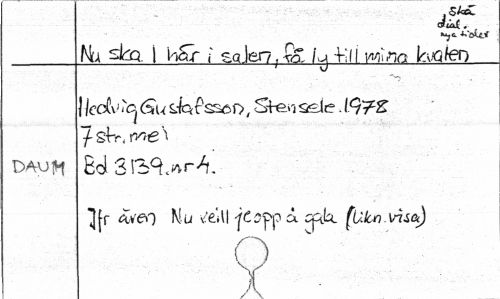 Skå
dial.
nya tider
Nu ska I här i salen, få ly till mina kvalen
Hedvig Gustafsson, Stensele. 1978
7 str. mel
DAUM Bd 3139. nr 4.
Jfr även Nu veill je opp å gala (likn. visa)